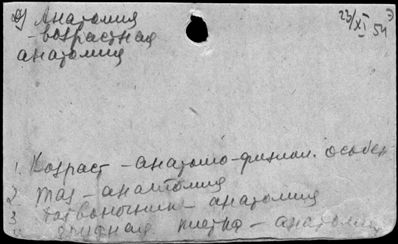 д) Анатомия
- возрастная
анатомия
23/XI 54 Э
1. Возраст - анатомо-физиол. особен
2 таз - анатомия
3 позвоночник - анатомия
4 грудная клетка - анатомия